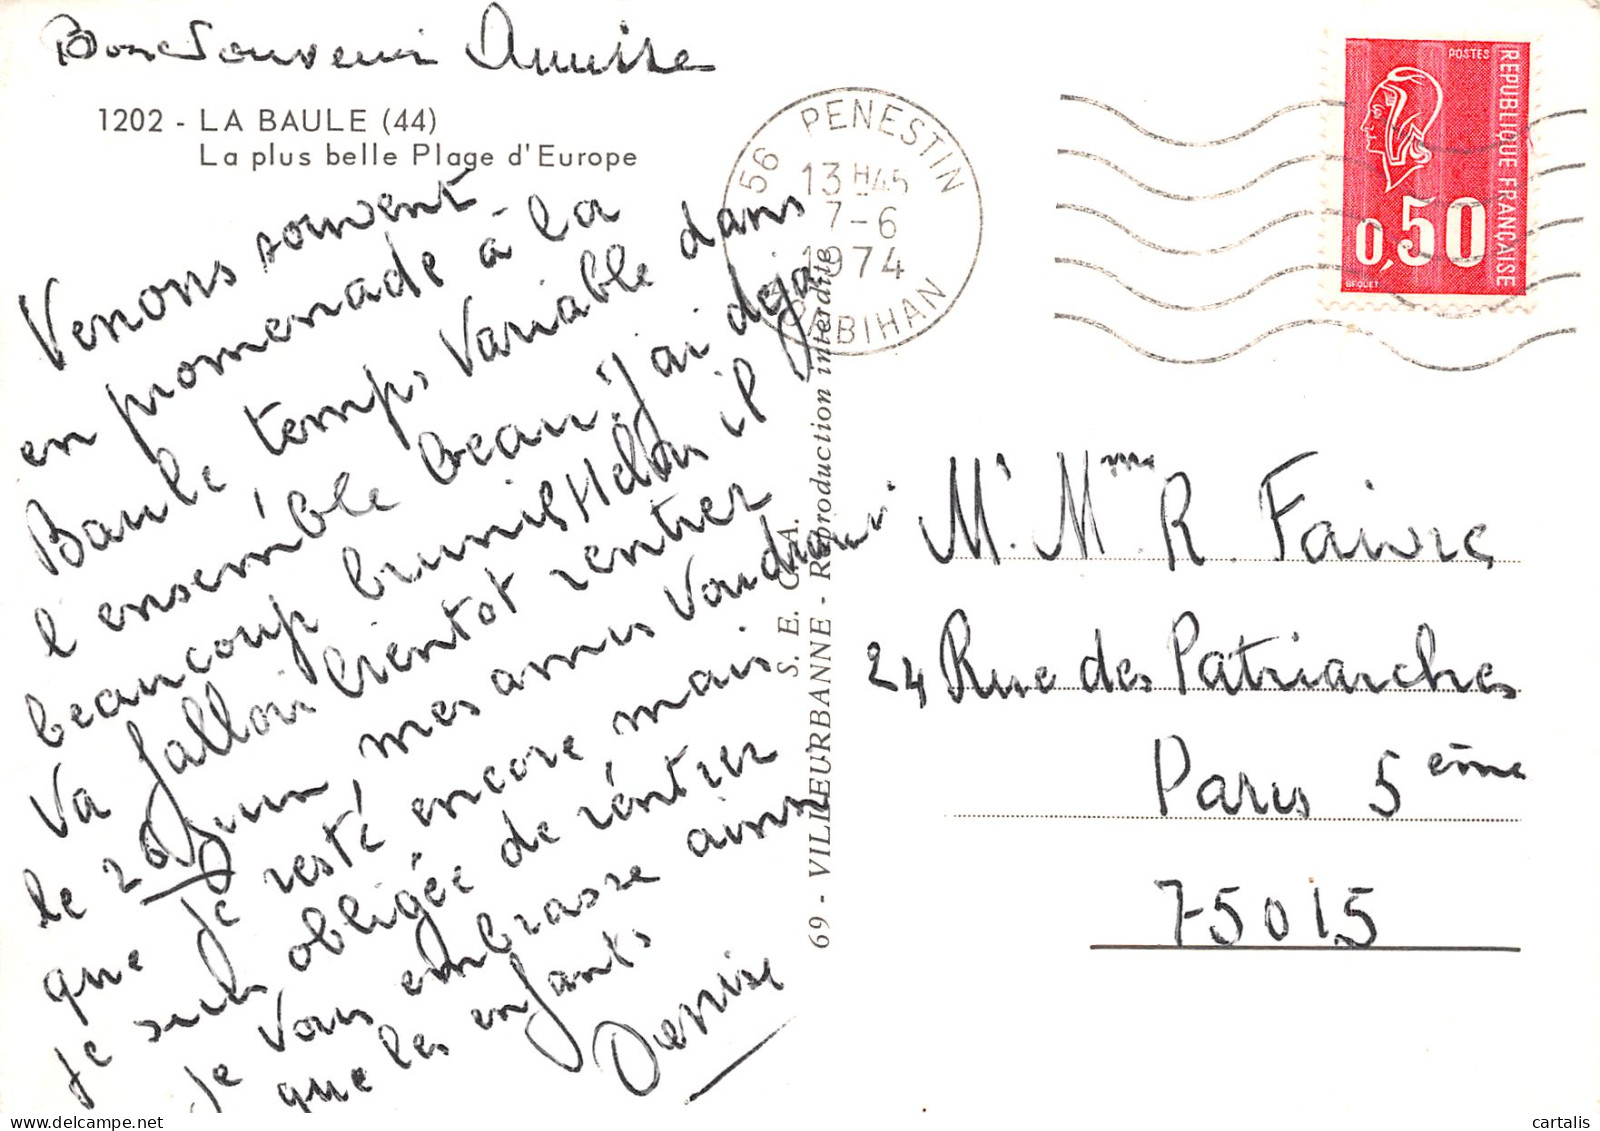 Bon Souvenir
1202 - LA BAULE (44)
La plus belle Plage d'Europe
Venons souvent
en promenade à la
Baule temps variable dans
l'ensemble beau, j'ai déja
beaucoup brunie, Hélas il
va falloir bientot rentrer
le 26 Juin, mes amis
que je reste encore mais
je suis obligée de rentrer
je vous embrasse ainsi
que les enfants
Denise
S. E.
69 - VILLEURBANNE - Reproduction interdite
56 PENESTIN
13 H45
7-6
1974
MORBIHAN
POSTES
REPUBLIQUE FRANÇAISE
0,50
BEQUET
Mr Mme R. Faivre
24 Rue des Patriarches
Paris 5ème
75015
cartalis